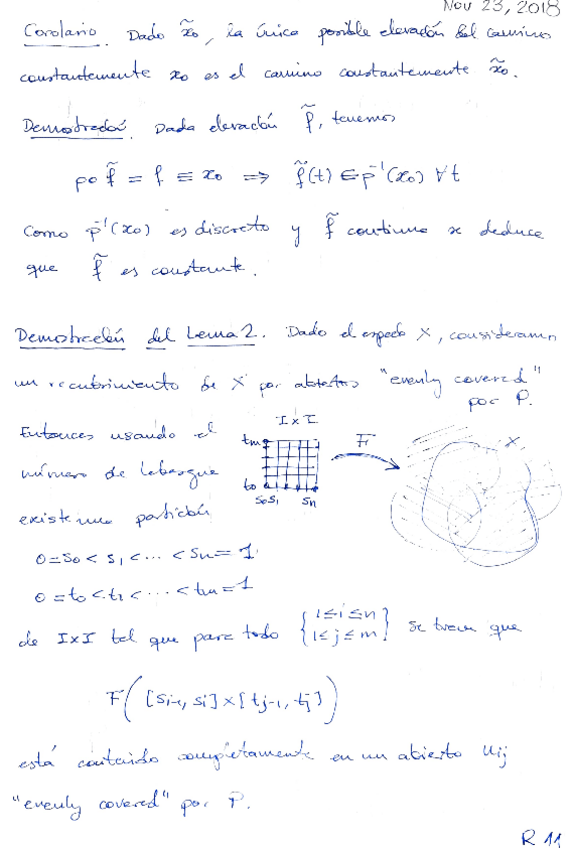 Nov 23, 2018
Corolario. Dado x̃₀, la única posible elevación del camino
constantemente x₀ es el camino constantemente x̃₀.
Demostración. Dada elevación f̃, tenemos
p∘f̃ = f ≡ x₀ ⟹ f̃(t) ∈ p⁻¹(x₀) ∀t
Como p⁻¹(x₀) es discreto y f̃ continua se deduce
que f̃ es constante.
Demostración del Lema 2. Dado el espacio X, consideramos
un recubrimiento de X por abiertos "evenly covered"
por P.
Entonces usando el
número de Lebesgue
existe una partición
0=s₀<s₁<···<sₙ=1
0=t₀<t₁<···<tₘ=1
I×I
tₘ
t₀
s₀ s₁ sₙ
F
X
de I×I tal que para todo {1≤i≤n
1≤j≤m} se tiene que
F([sᵢ₋₁, sᵢ]×[tⱼ₋₁, tⱼ])
está contenido completamente en un abierto Uᵢⱼ
"evenly covered" por P.
R 11